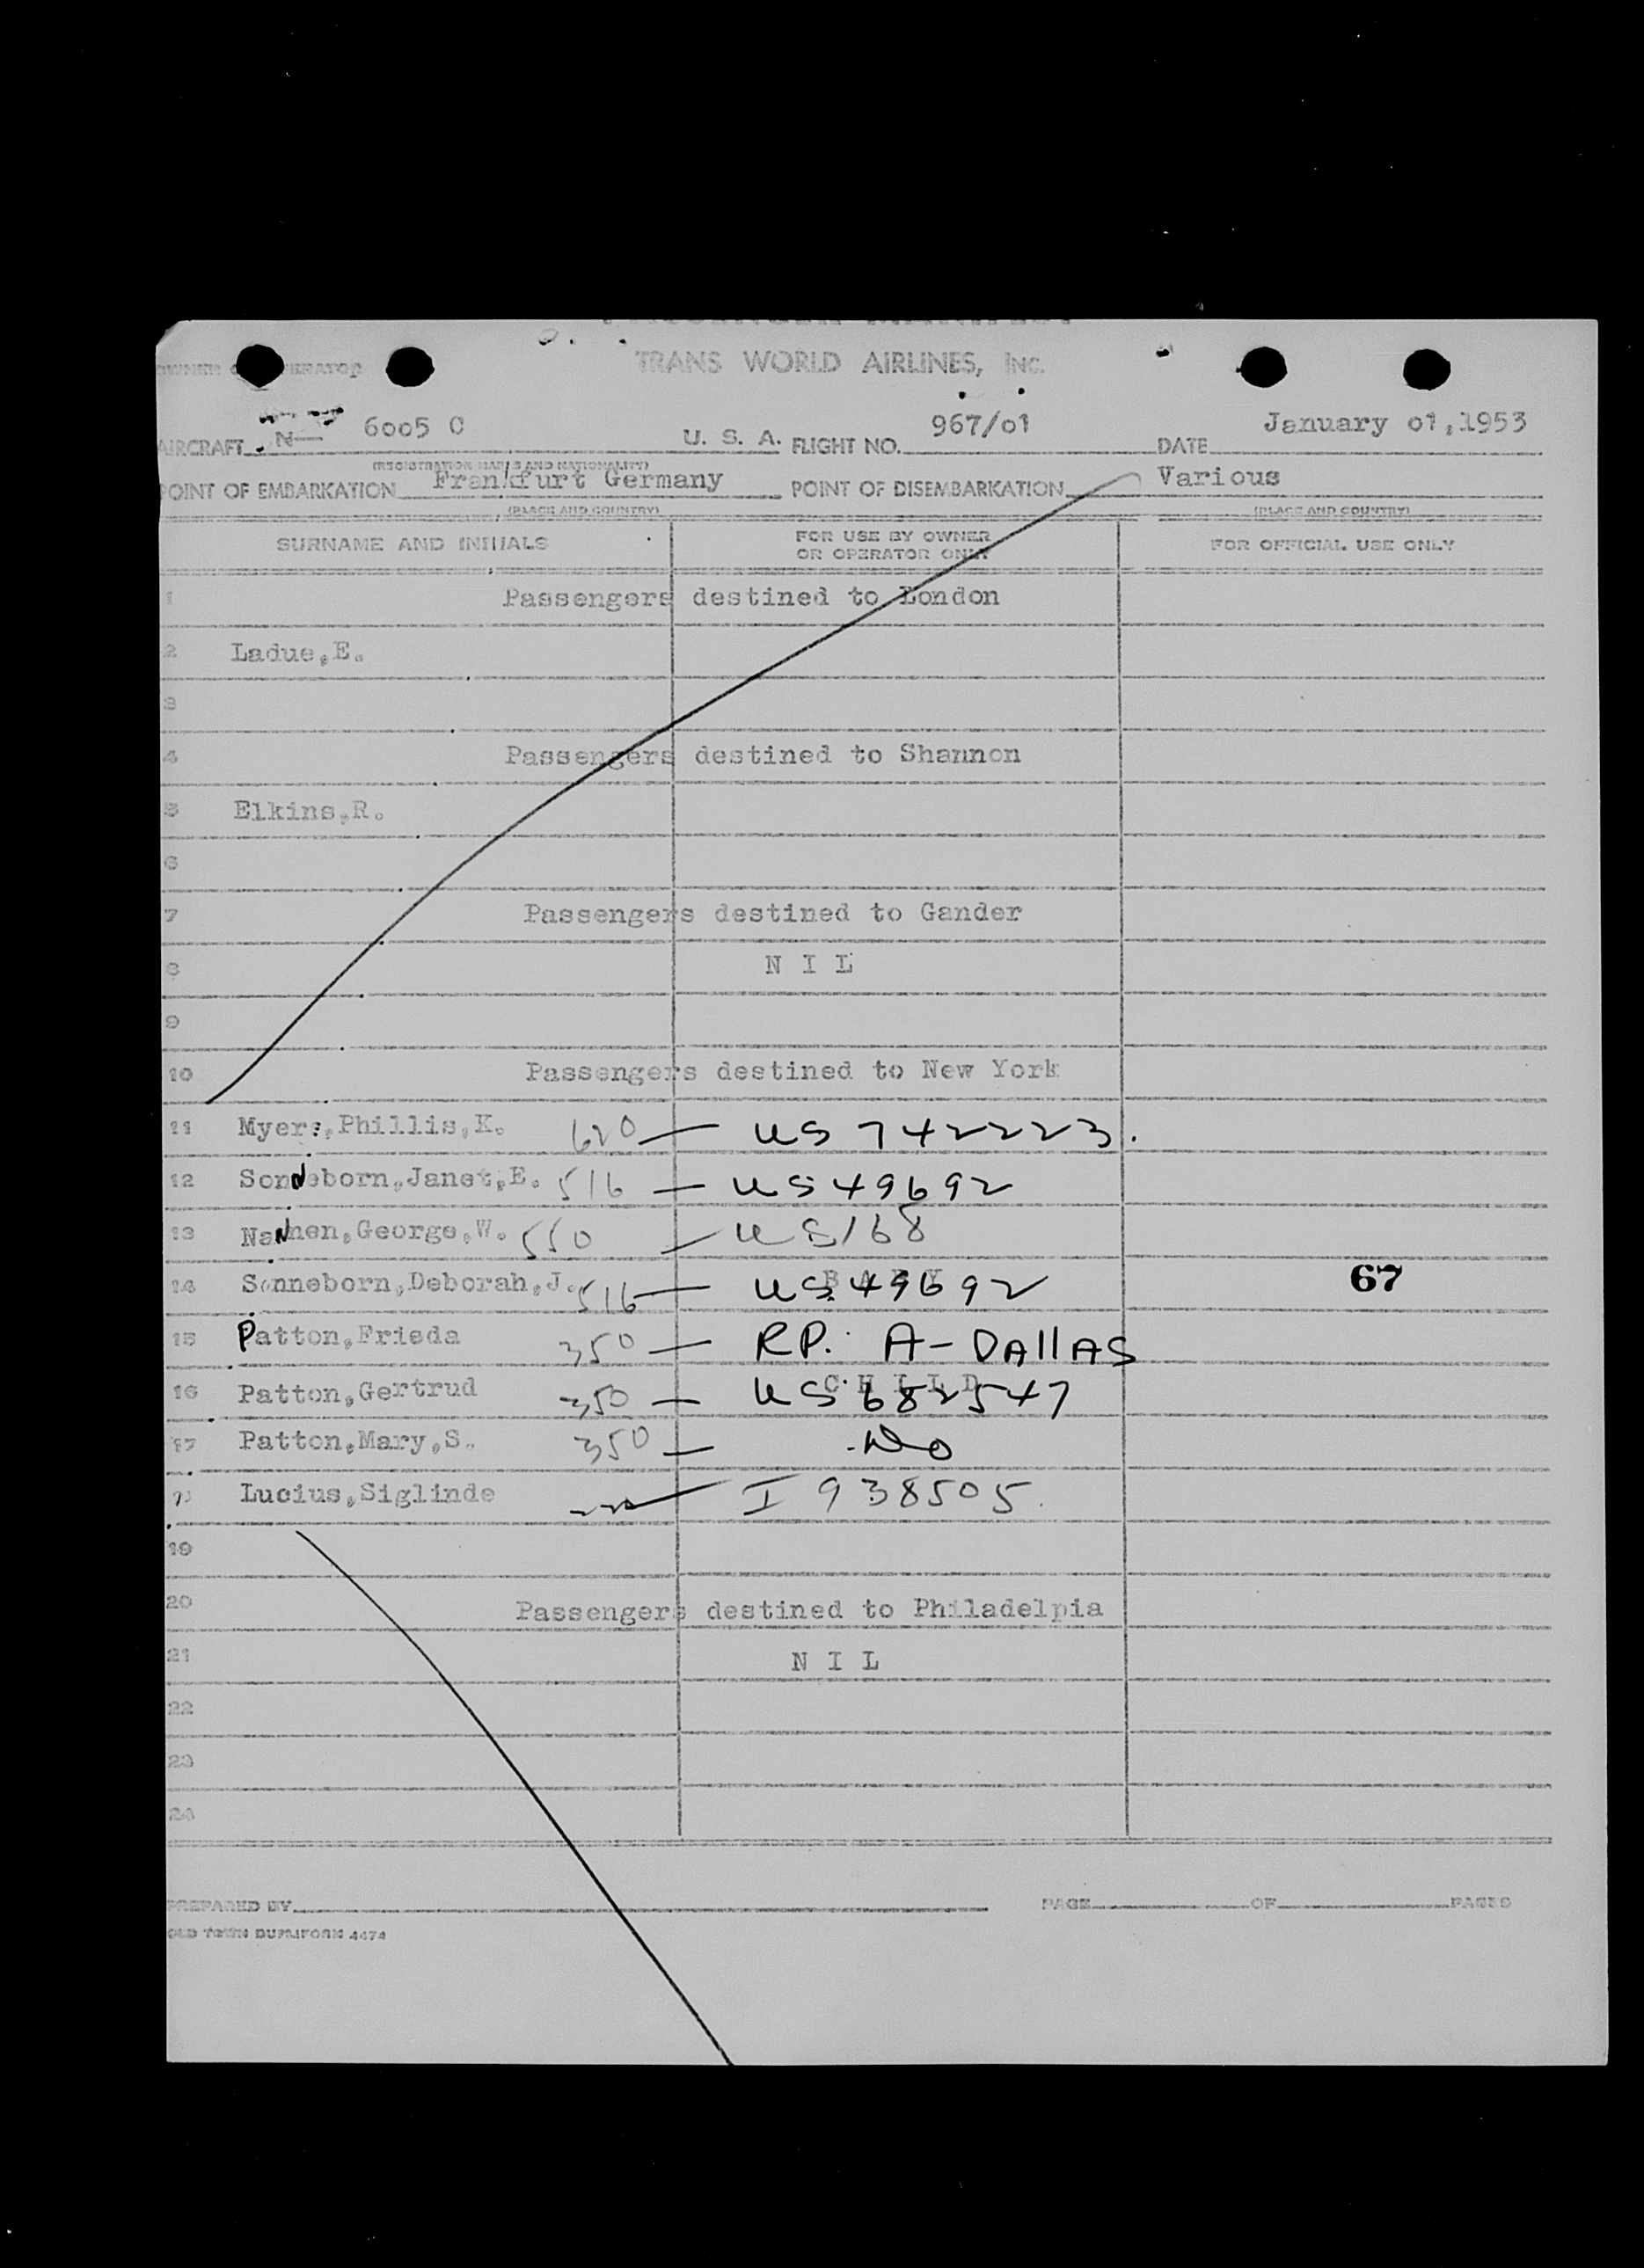 TRANS WORLD AIRLINES, INC.
AIRCRAFT N— 6005 C U. S. A. FLIGHT NO. 967/01 DATE January 01,1953
(REGISTRATION MARKS AND NATIONALITY)
POINT OF EMBARKATION Frankfurt Germany POINT OF DISEMBARKATION Various
(PLACE AND COUNTRY) (PLACE AND COUNTRY)
SURNAME AND INITIALS FOR USE BY OWNER OR OPERATOR ONLY FOR OFFICIAL USE ONLY
1 Passengers destined to London
2 Ladue,E.
3
4 Passengers destined to Shannon
5 Elkins,R.
6
7 Passengers destined to Gander
8 N I L
9
10 Passengers destined to New York
11 Myers,Phillis,K. 620 — US 742223.
12 Sonneborn,Janet,E. 516 — US 49692
13 George,W. 550 — US 168
14 Sonneborn,Deborah,J. 516 — BABY US 49692 67
15 Patton,Frieda 350 — RP. A-DALLAS
16 Patton,Gertrud 350 — CHILD US 682547
17 Patton,Mary,S. 350 —
Lucius,Siglinde — I 938505.
19
20 Passengers destined to Philadelpia
21 N I L
22
23
24
PREPARED BY PAGE OF PAGES
OLD TOWN DUPLIFORM 4474